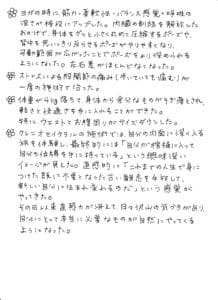 ヨガの時に、筋力・柔軟性・バランス感覚・呼吸の
深さが格段にアップした。内臓の制限を解放した
おかげで、身体をグッと小さくねじって圧縮するポーズや、
背中を思いっきり反らせるポーズがやりやすくなり、
可動範囲が広がったことでポーズをより深められる
ようになった。左右差がほとんどなくなった。
ストレスによる肋間筋の痛み(歩いていても痛む)が
一度の施術で治った。
体重が4kg落ちて身体から余分なものがそぎ落とされ、
軽さと快適さを手に入れることができた。
特に、ウエストとお腹周りがサイズダウンした。
クレニオセイクラルの施術では、自分の内面に深く入る
体験を体験し、最終的には「自分が宇宙に入って
自分の体験を手に持っている」という興味深い
イメージが見えた。直感的に「これまでの人生で身に
つけた既に不要となった古い観念を手放して、
新しい自分に生まれ変わるのだ」という感覚が
やってきた。
その日以来直感力が冴えて、日々沢山の気づきがあり、
自分にとって本当に必要なものが自然にやってくる
ようになった。